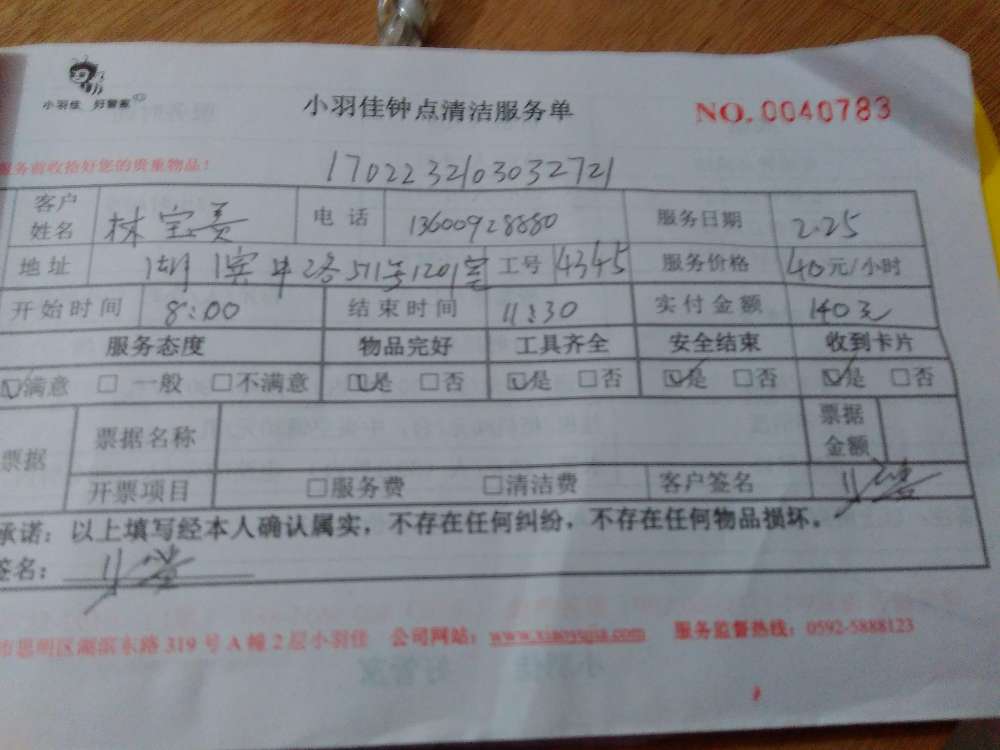 小羽佳 好管家
小羽佳钟点清洁服务单
NO. 0040783
服务前收拾好您的贵重物品！
1702232103032721
客户姓名 林宝 电话 13600928880 服务日期 2.25
地址 湖滨中路511号1201室 工号 4345 服务价格 40元/小时
开始时间 8:00 结束时间 11:30 实付金额 140元
服务态度 物品完好 工具齐全 安全结束 收到卡片
☑满意 □一般 □不满意 ☑是 □否 ☑是 □否 ☑是 □否 ☑是 □否
票据 票据名称 票据金额
开票项目 □服务费 □清洁费 客户签名
承诺：以上填写经本人确认属实，不存在任何纠纷，不存在任何物品损坏。
签名：
市思明区湖滨东路 319 号 A 幢 2 层小羽佳 公司网站：www.xiaoyujia.com 服务监督热线：0592-5888123